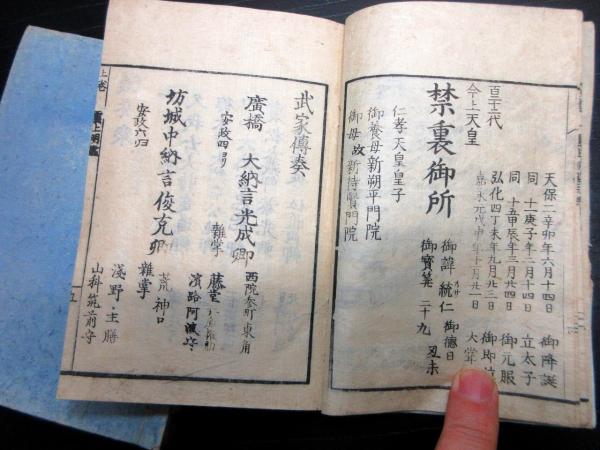 百二十二代
今上天皇
天保二辛卯年六月十四日 御降誕
同十一庚子年三月十四日 立太子
同十五甲辰年三月廿四日 御元服
弘化四丁未年九月廿三日 御即位
嘉永元戊申年十一月廿一日 大甞
禁裏御所
御諱 統仁 御德日
御寳筭 二十九 丑未
仁孝天皇皇子
御養母新朔平門院
御母故新待賢門院
武家傳奏
廣橋 大納言光成卿
安政四
西院参町東角
雜掌 藤堂
濱路阿波守
坊城中納言俊克卿
安政六
荒神口
雜掌 淺野主膳
山科筑前守
上巻
雲上明鑑
五